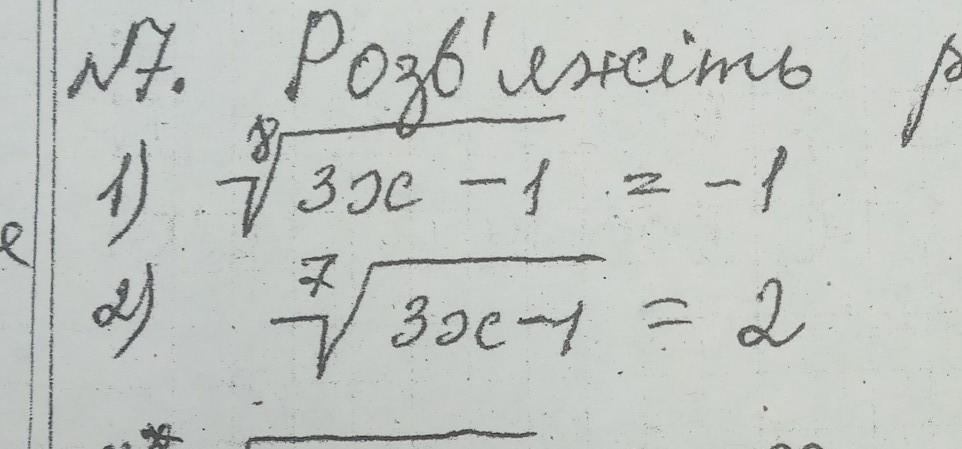 №7. Розв'яжіть р
1) ⁸√(3x - 1) = -1
2) ⁷√(3x-1) = 2